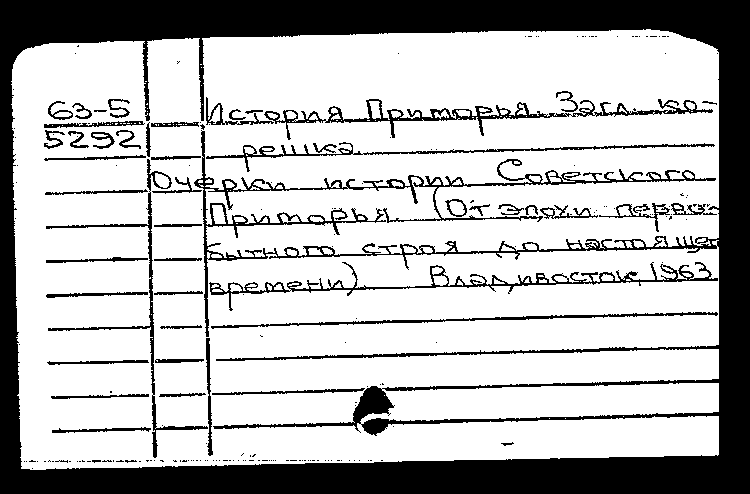 63-5 История Приморья. Загл. ко-
5292 решка.
Очерки истории Советского
Приморья. (От эпохи перво-
бытного строя до настоящег
времени). Владивосток, 1963